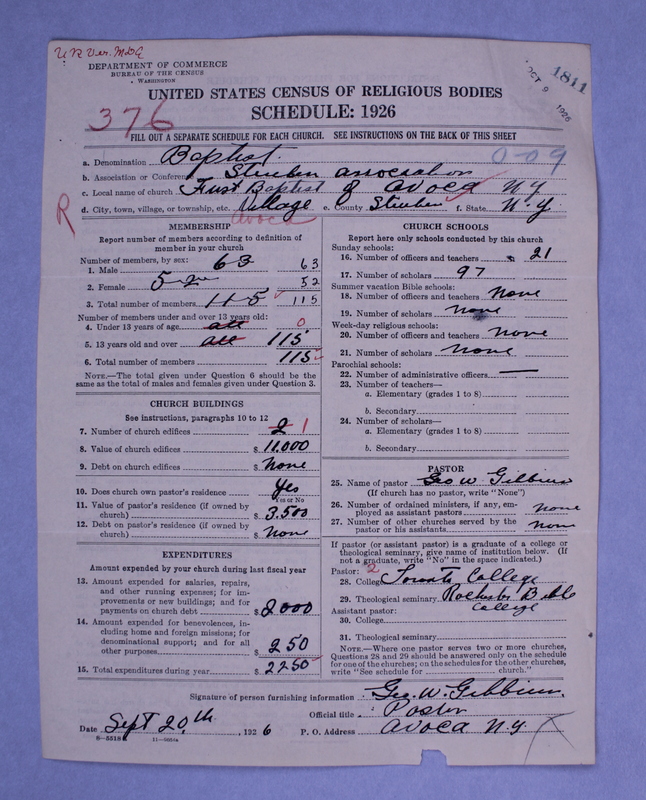 U R Ver. MDG
DEPARTMENT OF COMMERCE
BUREAU OF THE CENSUS
WASHINGTON
1811
OCT 9 1926
UNITED STATES CENSUS OF RELIGIOUS BODIES
SCHEDULE: 1926
376
FILL OUT A SEPARATE SCHEDULE FOR EACH CHURCH. SEE INSTRUCTIONS ON THE BACK OF THIS SHEET
0-09
a. Denomination Baptist.
b. Association or Conference Steuben association
c. Local name of church First Baptist of avoca N Y
R
d. City, town, village, or township, etc. Village e. County Steuben f. State N. Y.
avoca
MEMBERSHIP
Report number of members according to definition of
member in your church
Number of members, by sex:
1. Male 63 63
2. Female 52 52
3. Total number of members 115 115
Number of members under and over 13 years old:
4. Under 13 years of age all 0
5. 13 years old and over all 115
6. Total number of members 115
NOTE.—The total given under Question 6 should be the
same as the total of males and females given under Question 3.
CHURCH BUILDINGS
See instructions, paragraphs 10 to 12
7. Number of church edifices 2 1
8. Value of church edifices $ 11.000
9. Debt on church edifices $ None
10. Does church own pastor's residence Yes
Yes or No
11. Value of pastor's residence (if owned by
church) $ 3.500
12. Debt on pastor's residence (if owned by
church) $ None
EXPENDITURES
Amount expended by your church during last fiscal year
13. Amount expended for salaries, repairs,
and other running expenses; for im-
provements or new buildings; and for
payments on church debt $ 2000
14. Amount expended for benevolences, in-
cluding home and foreign missions; for
denominational support; and for all
other purposes $ 250
15. Total expenditures during year $ 2250
CHURCH SCHOOLS
Report here only schools conducted by this church
Sunday schools:
16. Number of officers and teachers 21
17. Number of scholars 97
Summer vacation Bible schools:
18. Number of officers and teachers None
19. Number of scholars None
Week-day religious schools:
20. Number of officers and teachers None
21. Number of scholars None
Parochial schools:
22. Number of administrative officers —
23. Number of teachers—
a. Elementary (grades 1 to 8)
b. Secondary
24. Number of scholars—
a. Elementary (grades 1 to 8)
b. Secondary
PASTOR
25. Name of pastor Geo W Gibbins
(If church has no pastor, write "None")
26. Number of ordained ministers, if any, em-
ployed as assistant pastors None
27. Number of other churches served by the
pastor or his assistants None
If pastor (or assistant pastor) is a graduate of a college or
theological seminary, give name of institution below. (If
not a graduate, write "No" in the space indicated.)
Pastor: 2
28. College Toronto College
29. Theological seminary Rochester Bible
College
Assistant pastor:
30. College
31. Theological seminary
NOTE.—Where one pastor serves two or more churches,
Questions 28 and 29 should be answered only on the schedule
for one of the churches; on the schedules for the other churches,
write "See schedule for church."
Signature of person furnishing information Geo. W. Gibbins.
Official title Pastor
Date Sept 20th, 1926 P. O. Address avoca N Y
8-5518 11-9664a